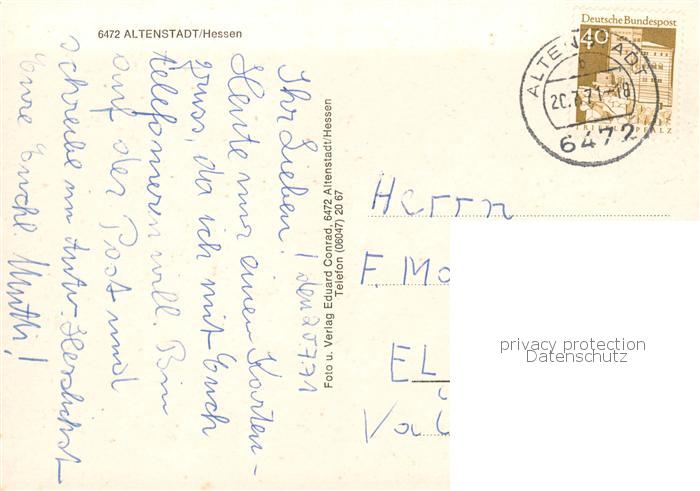 6472 ALTENSTADT/Hessen
Ihr Lieben! | den 20.7.71
Heute nur einen Karten-
gruss, da ich mit Euch
telefonieren will. Bin
auf der Post und
schreibe im Auto. Herzlichst
Eure Mutti!
Foto u. Verlag Eduard Conrad, 6472 Altenstadt/Hessen
Telefon (06047) 20 67
Deutsche Bundespost
40
TRIFELS/PFALZ
ALTENSTADT
b
20.7.71-18
6472
Herrn
F. Mo
EL
Va
privacy protection
Datenschutz